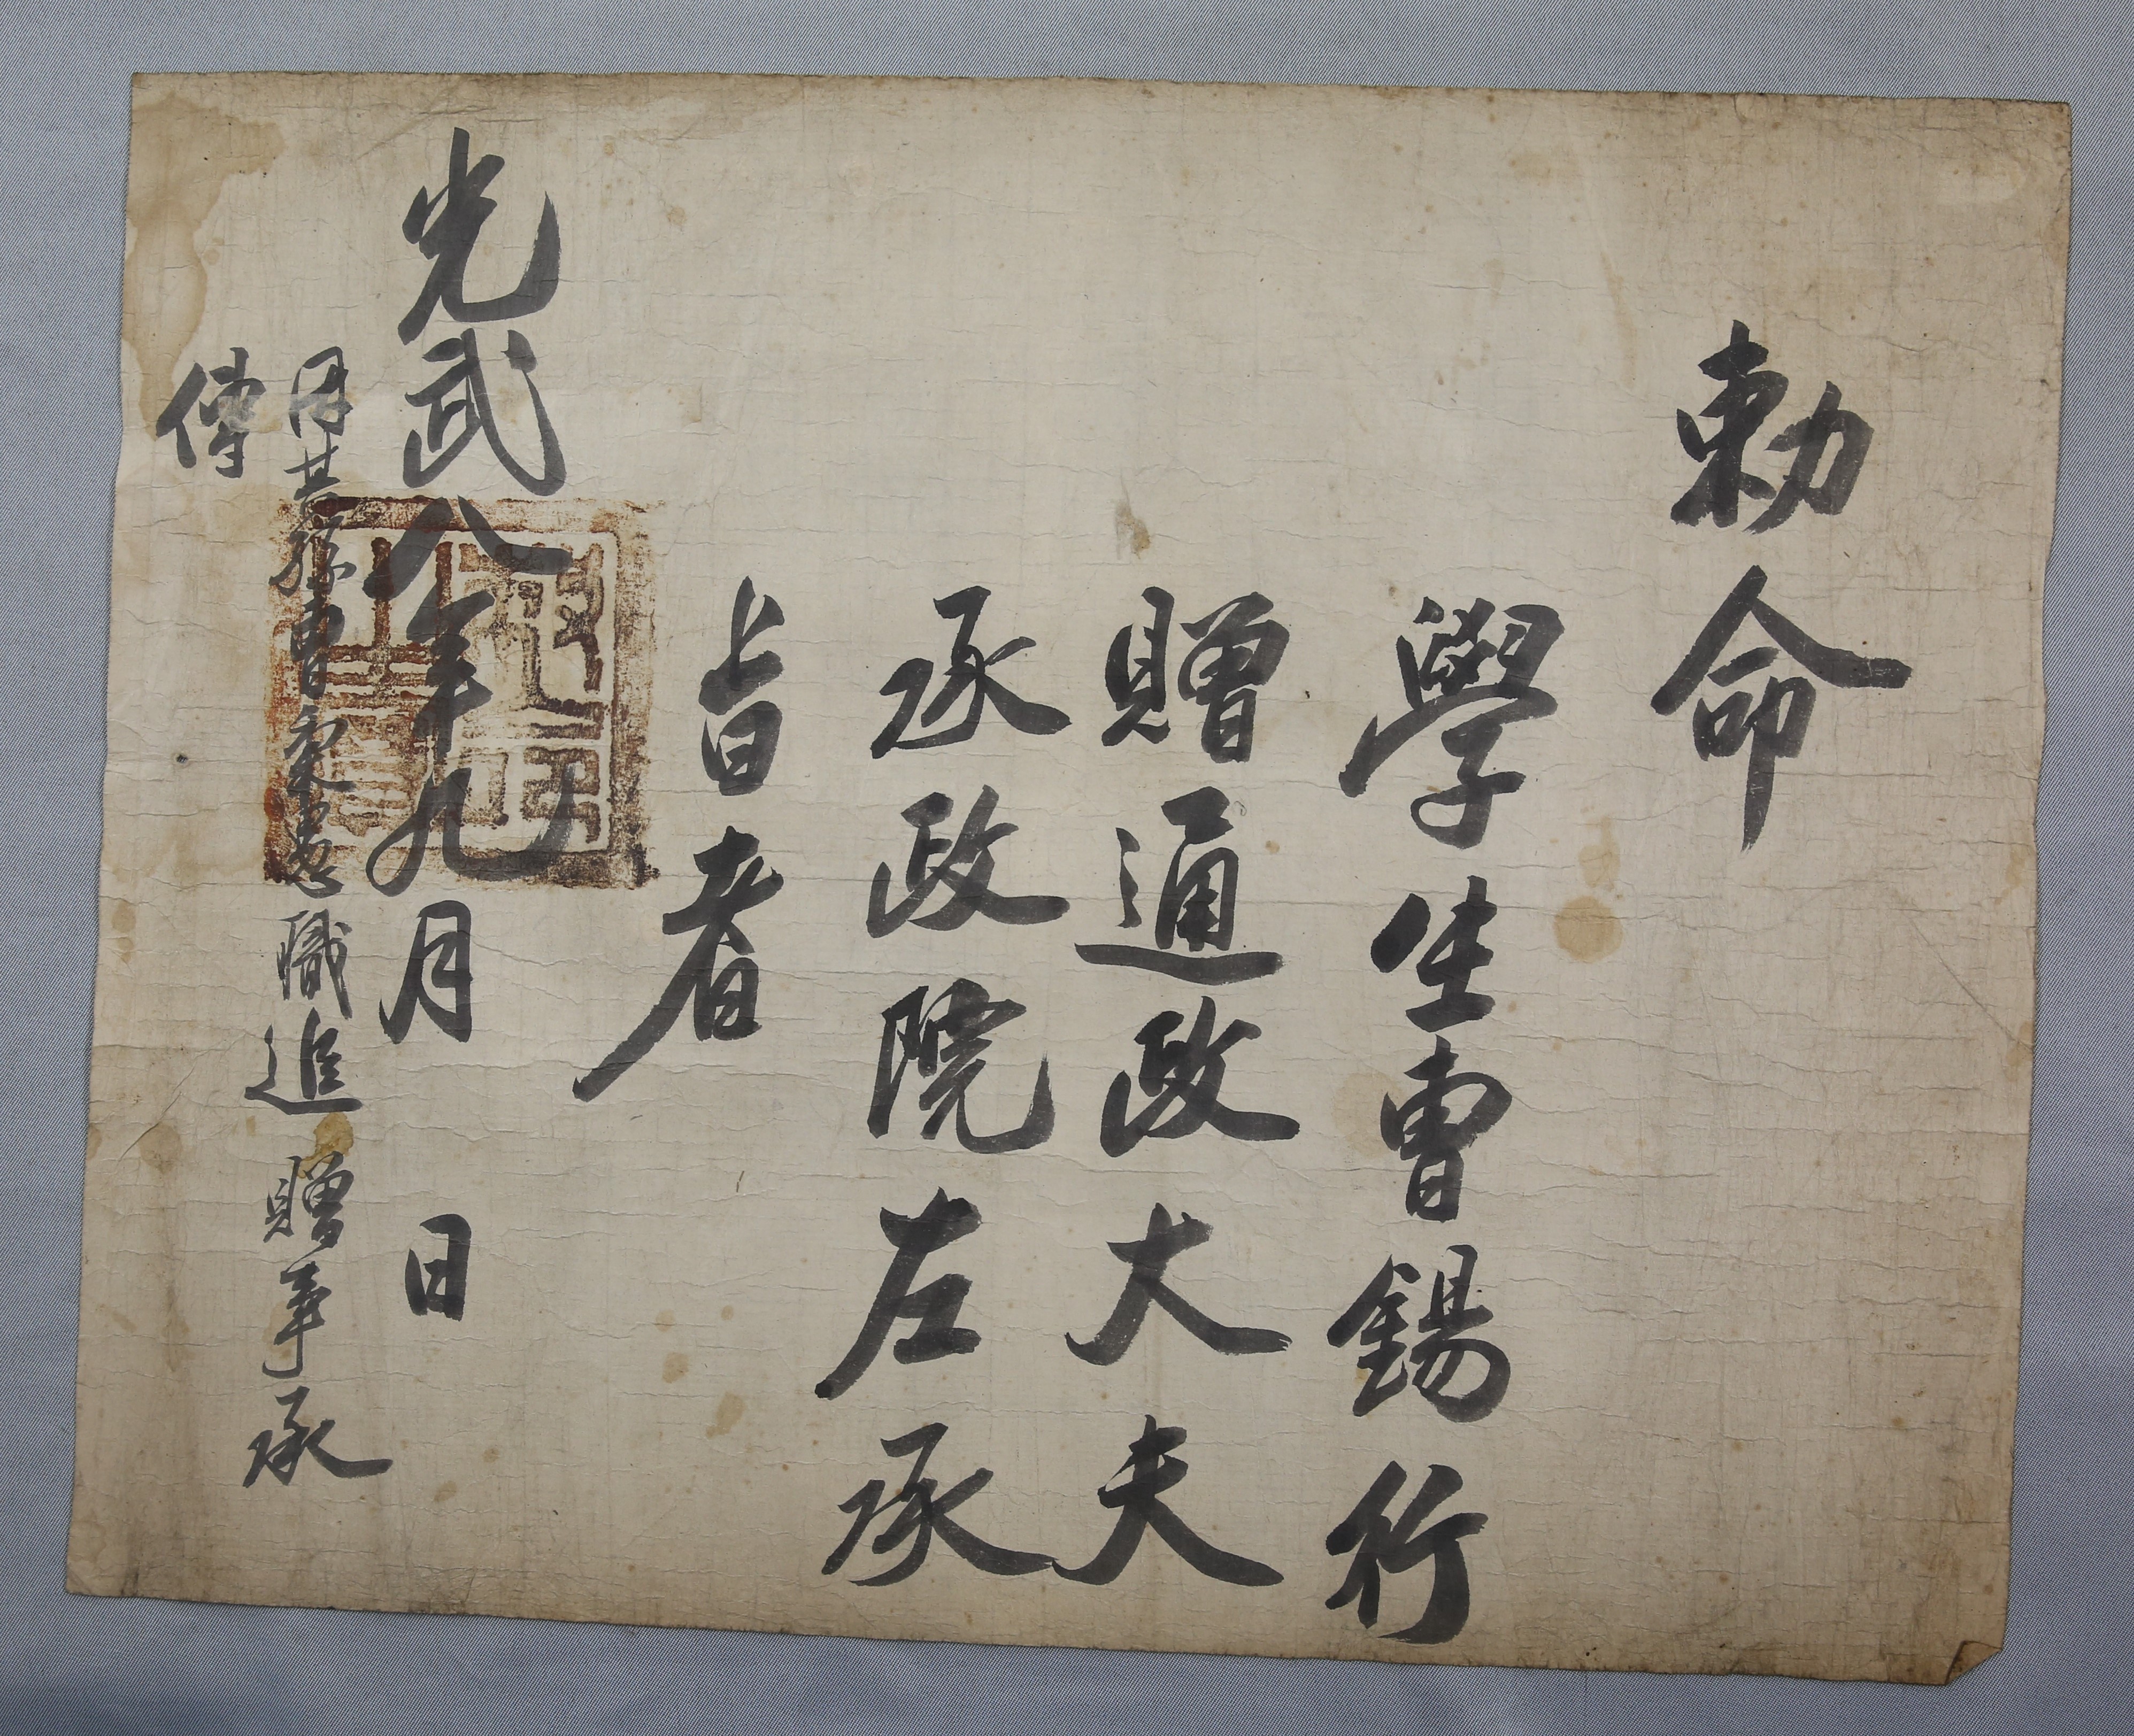 勅命
學生曺錫行
贈通政大夫
承政院左承
旨者
光武八年九月 日
因其孫曺秉悳職追 贈事承
傳